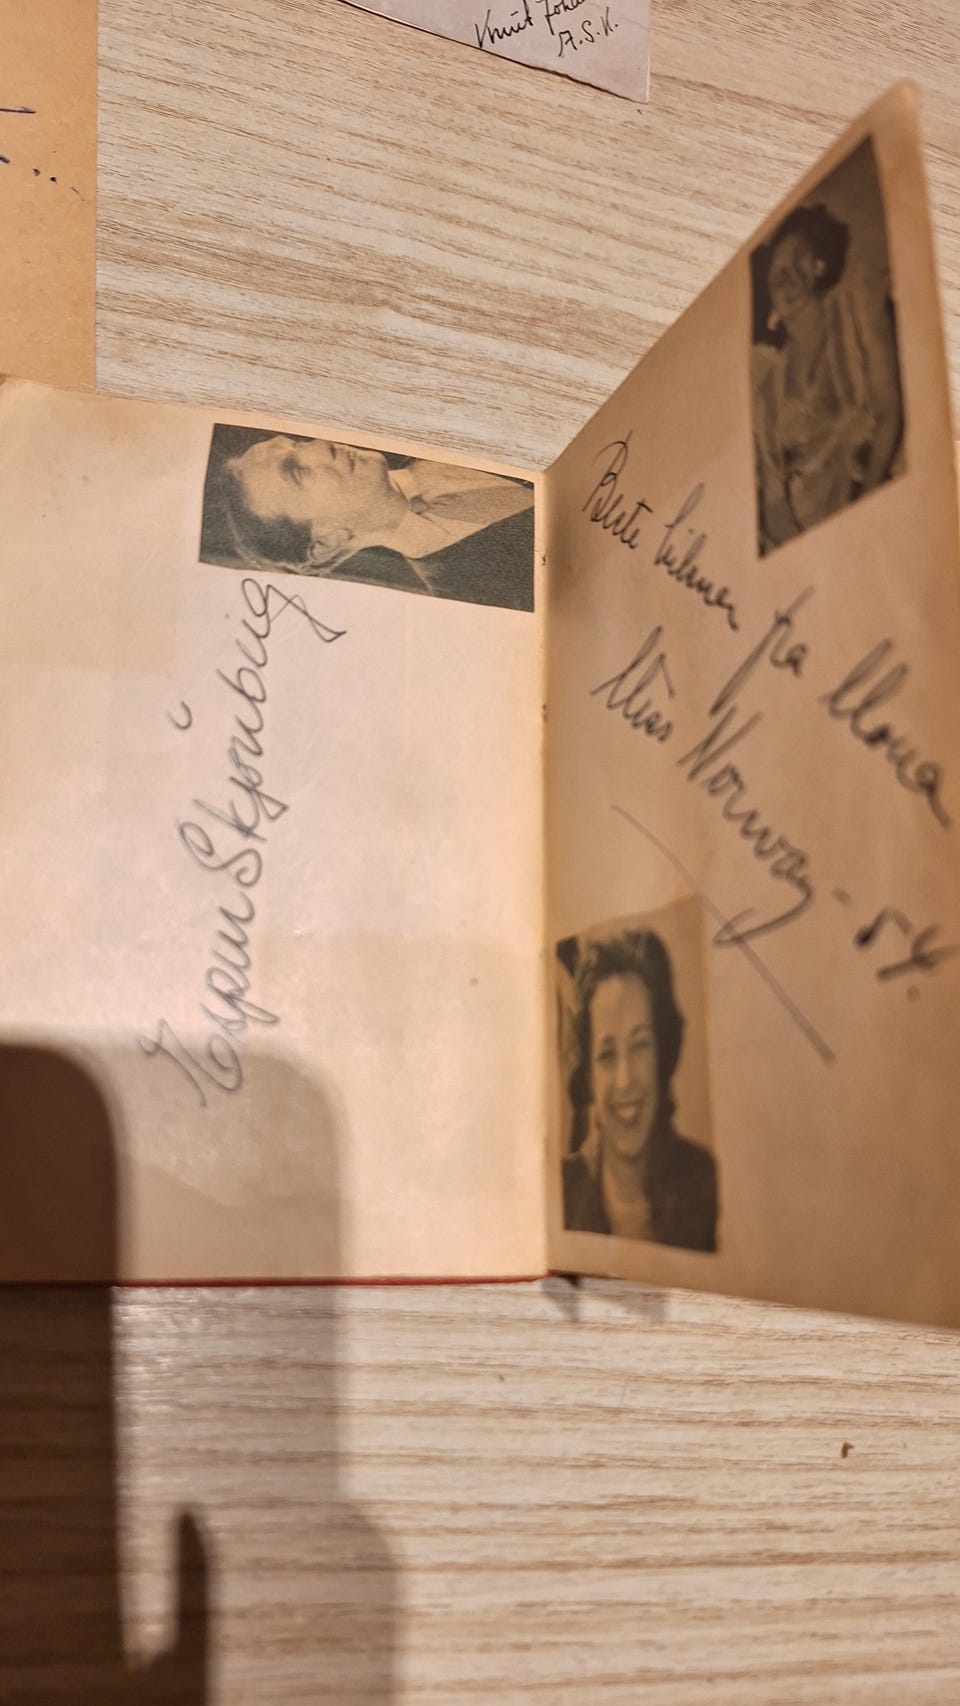 Knut Joha
A.S.K.
Espen Skjønberg
Beste hilsener fra Mona
Miss Norway - 54.